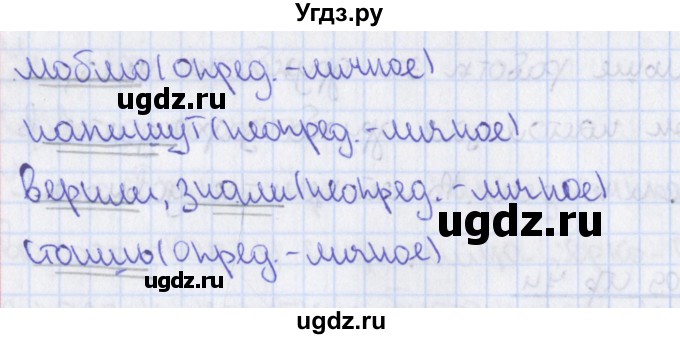 Угдз.ру
люблю (опред.-личное)
ugdz.ru
напишут (неопред.-личное)
верили, знали (неопред.-личное)
ugdz.ru
стоишь (опред.-личное)
ugdz.ru
ugdz.ru